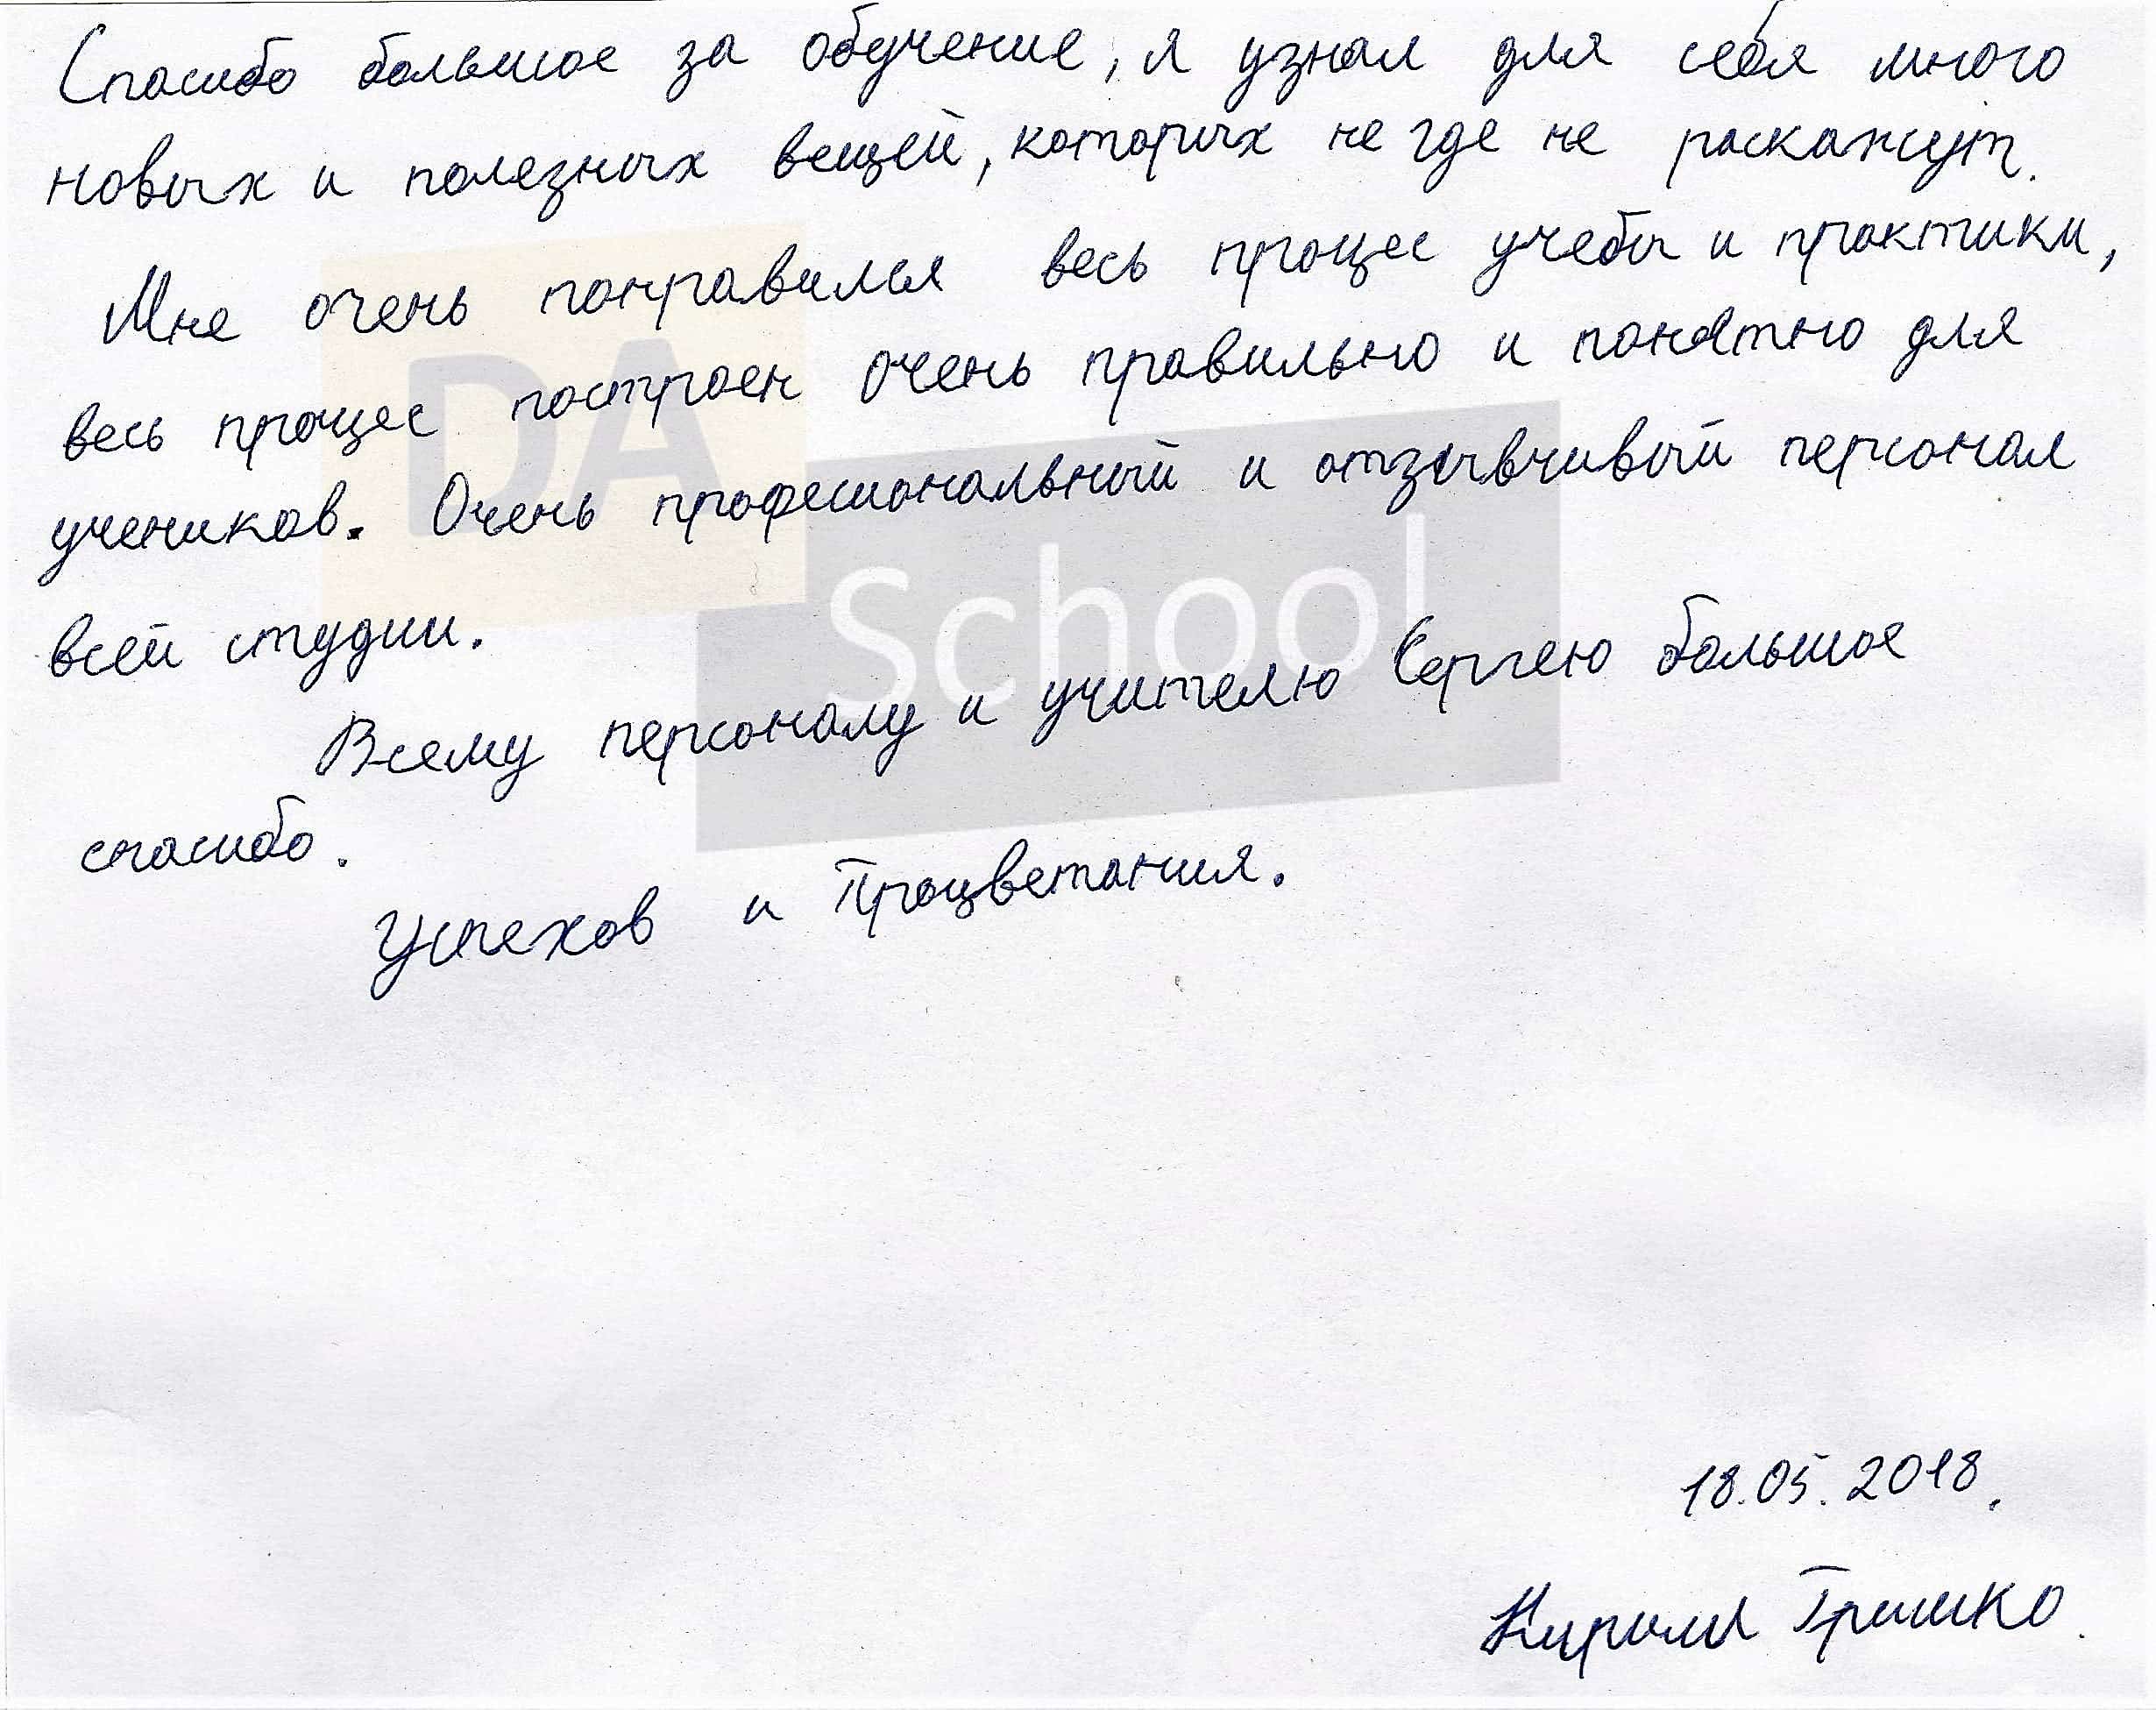 Спасибо большое за обучение, я узнал для себя много
новых и полезных вещей, которых не где не раскажут.
Мне очень понравился весь процес учебы и практики,
весь процес построен очень правильно и понятно для
учеников. Очень професиональный и отзывчивый персонал
всей студии.
Всему персоналу и учителю Сергею большое
спасибо.
Успехов и Процветания.
DA
School
18.05.2018.
Кирилл Гришко.